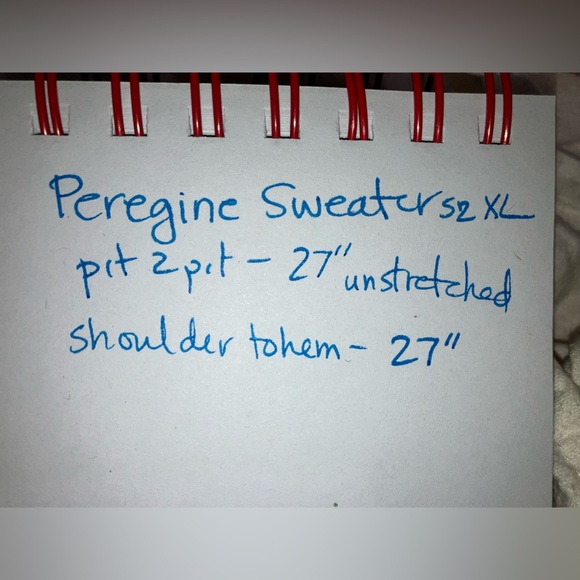 Peregine Sweater sz XL
pit 2 pit - 27" unstretched
shoulder to hem - 27"